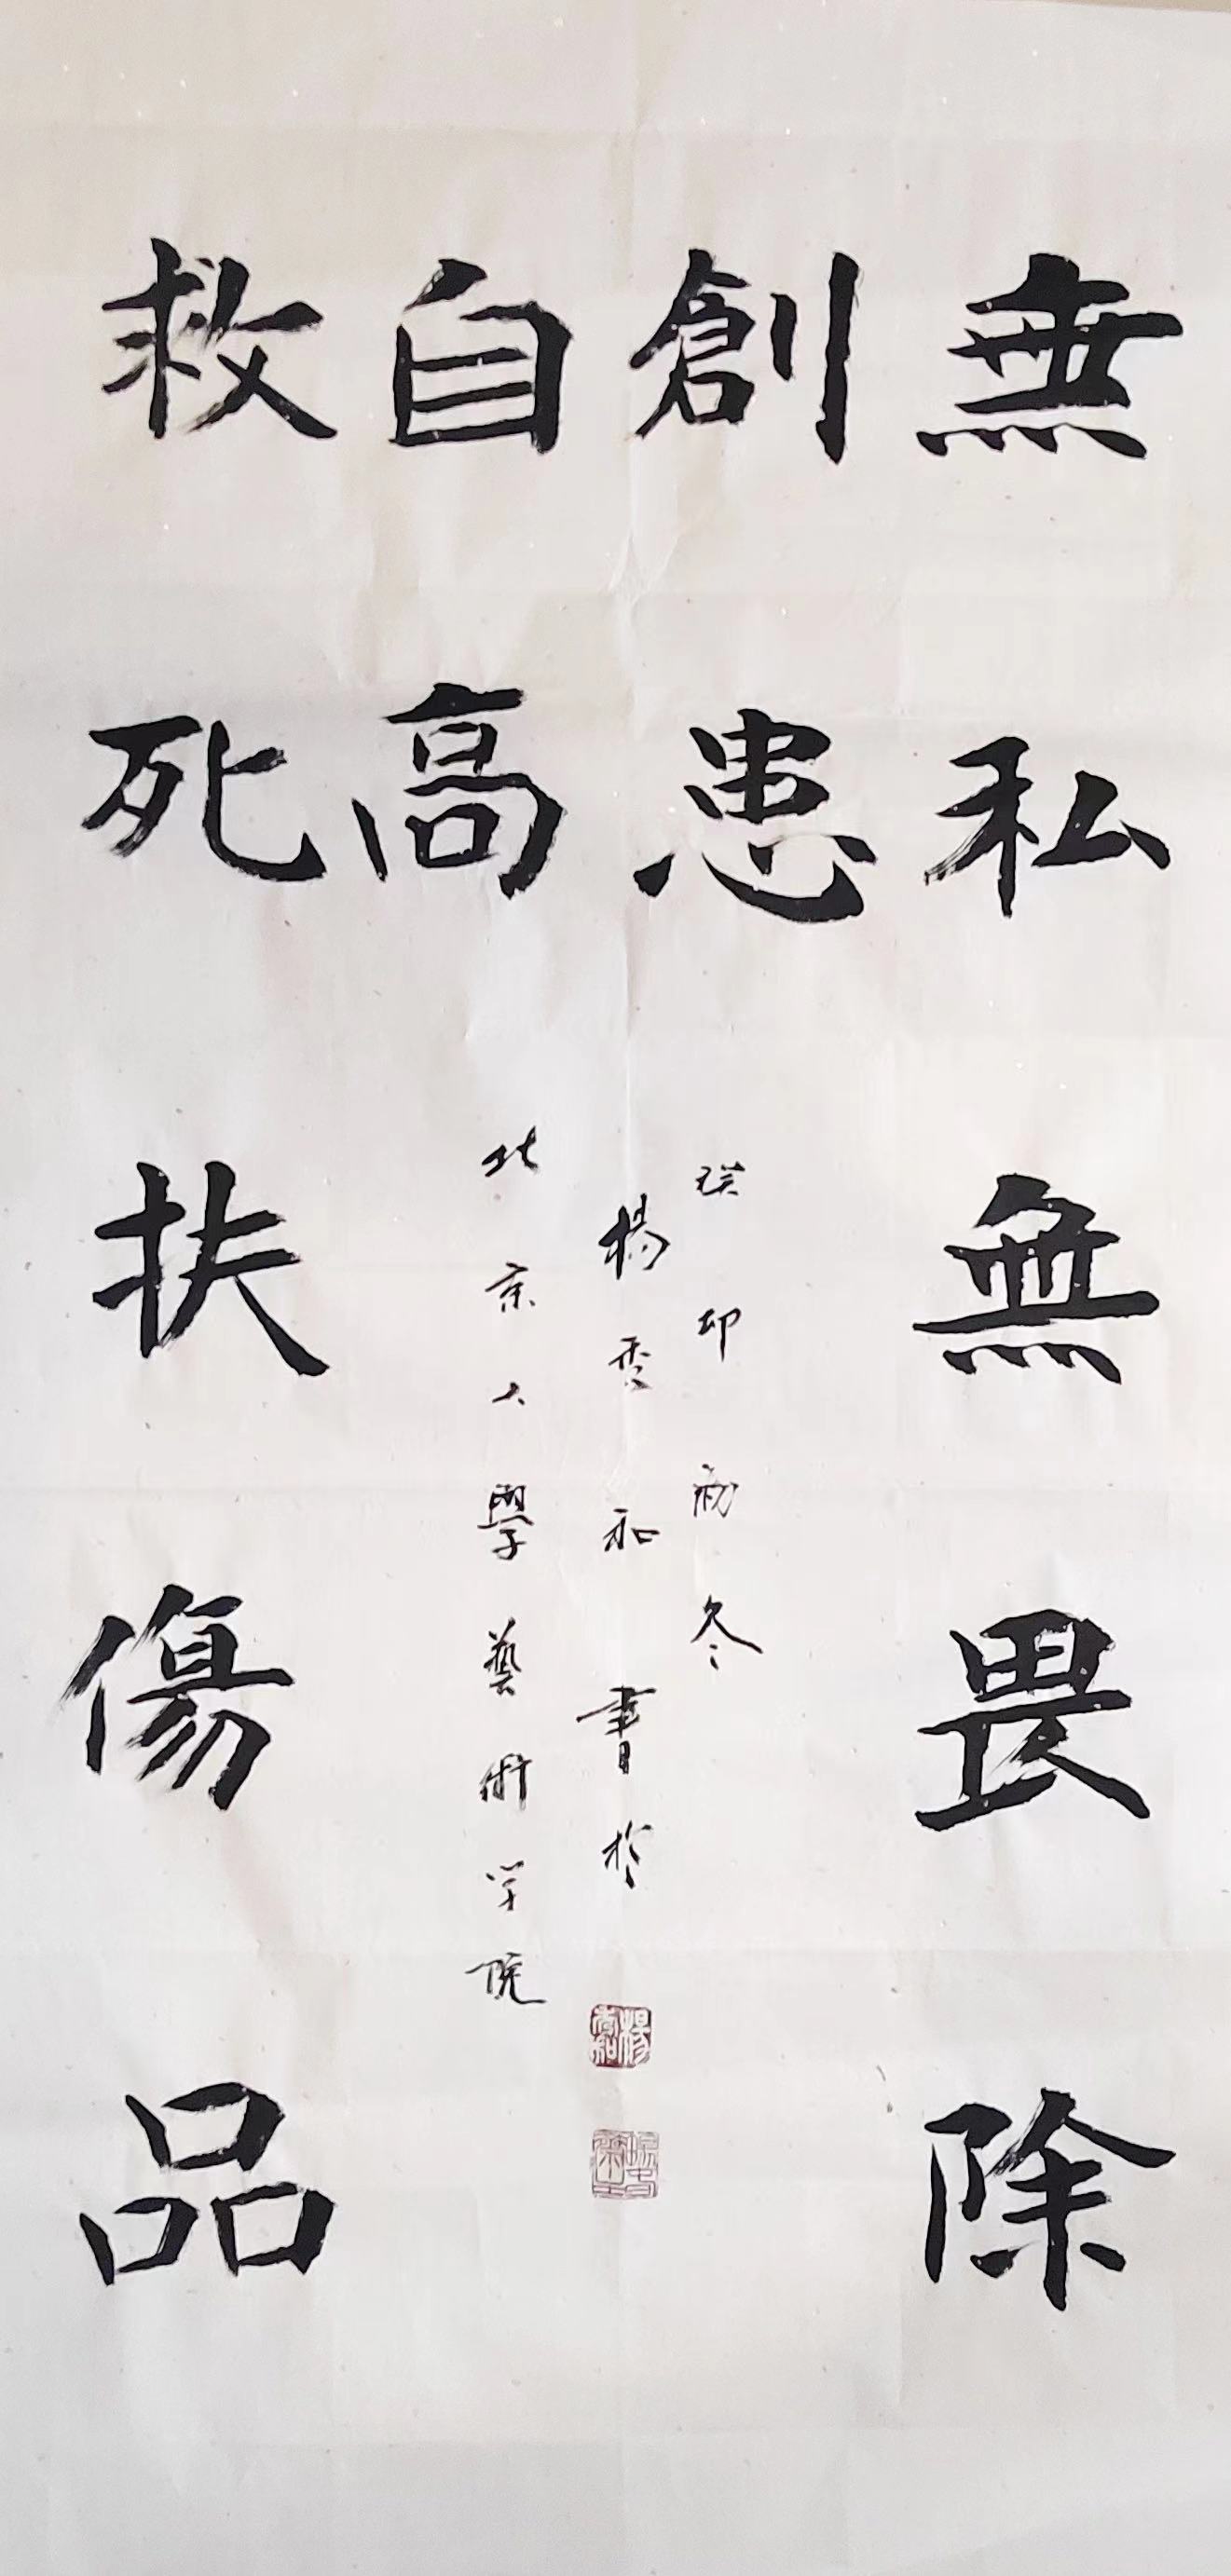 無私無畏除
創患
救死扶傷品
自高
癸卯初冬
楊秀和書於
北京大學藝術学院